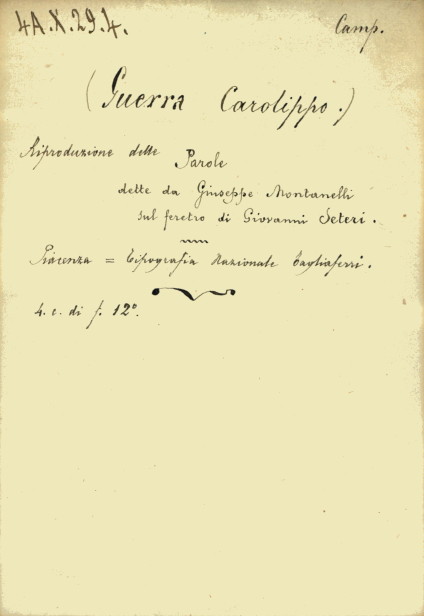 4A.X.29.4.
Camp.
(Guerra Carolippo.)
Riproduzione delle Parole
dette da Giuseppe Montanelli
sul feretro di Giovanni Seteri.
Piacenza = Tipografia Nazionale Tagliaferri.
4. c. di f. 12°.